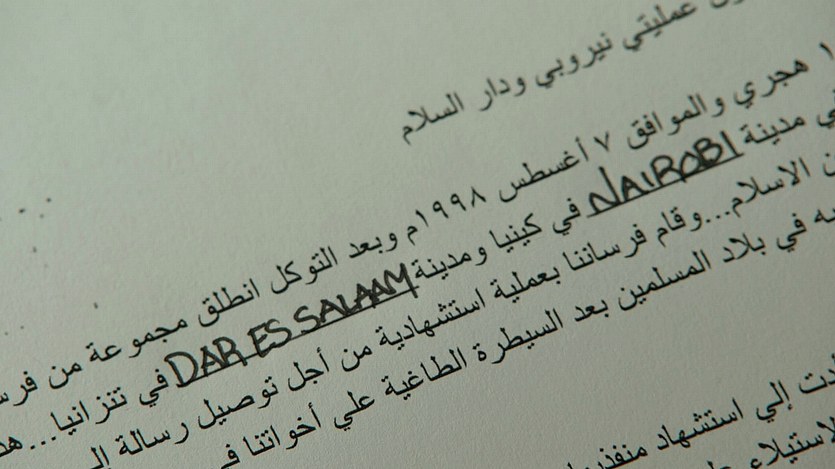 عمليتي نيروبي ودار السلام
هجري والموافق ٧ أغسطس ١٩٩٨م وبعد التوكل انطلق مجموعة من
مدينة NAIROBI في كينيا ومدينة DAR ES SALAAM في تنزانيا...
الاسلام...وقام فرساننا بعملية استشهادية من أجل توصيل رسالة
في بلاد المسلمين بعد السيطرة الطاغية علي أخواتنا
إلي استشهاد